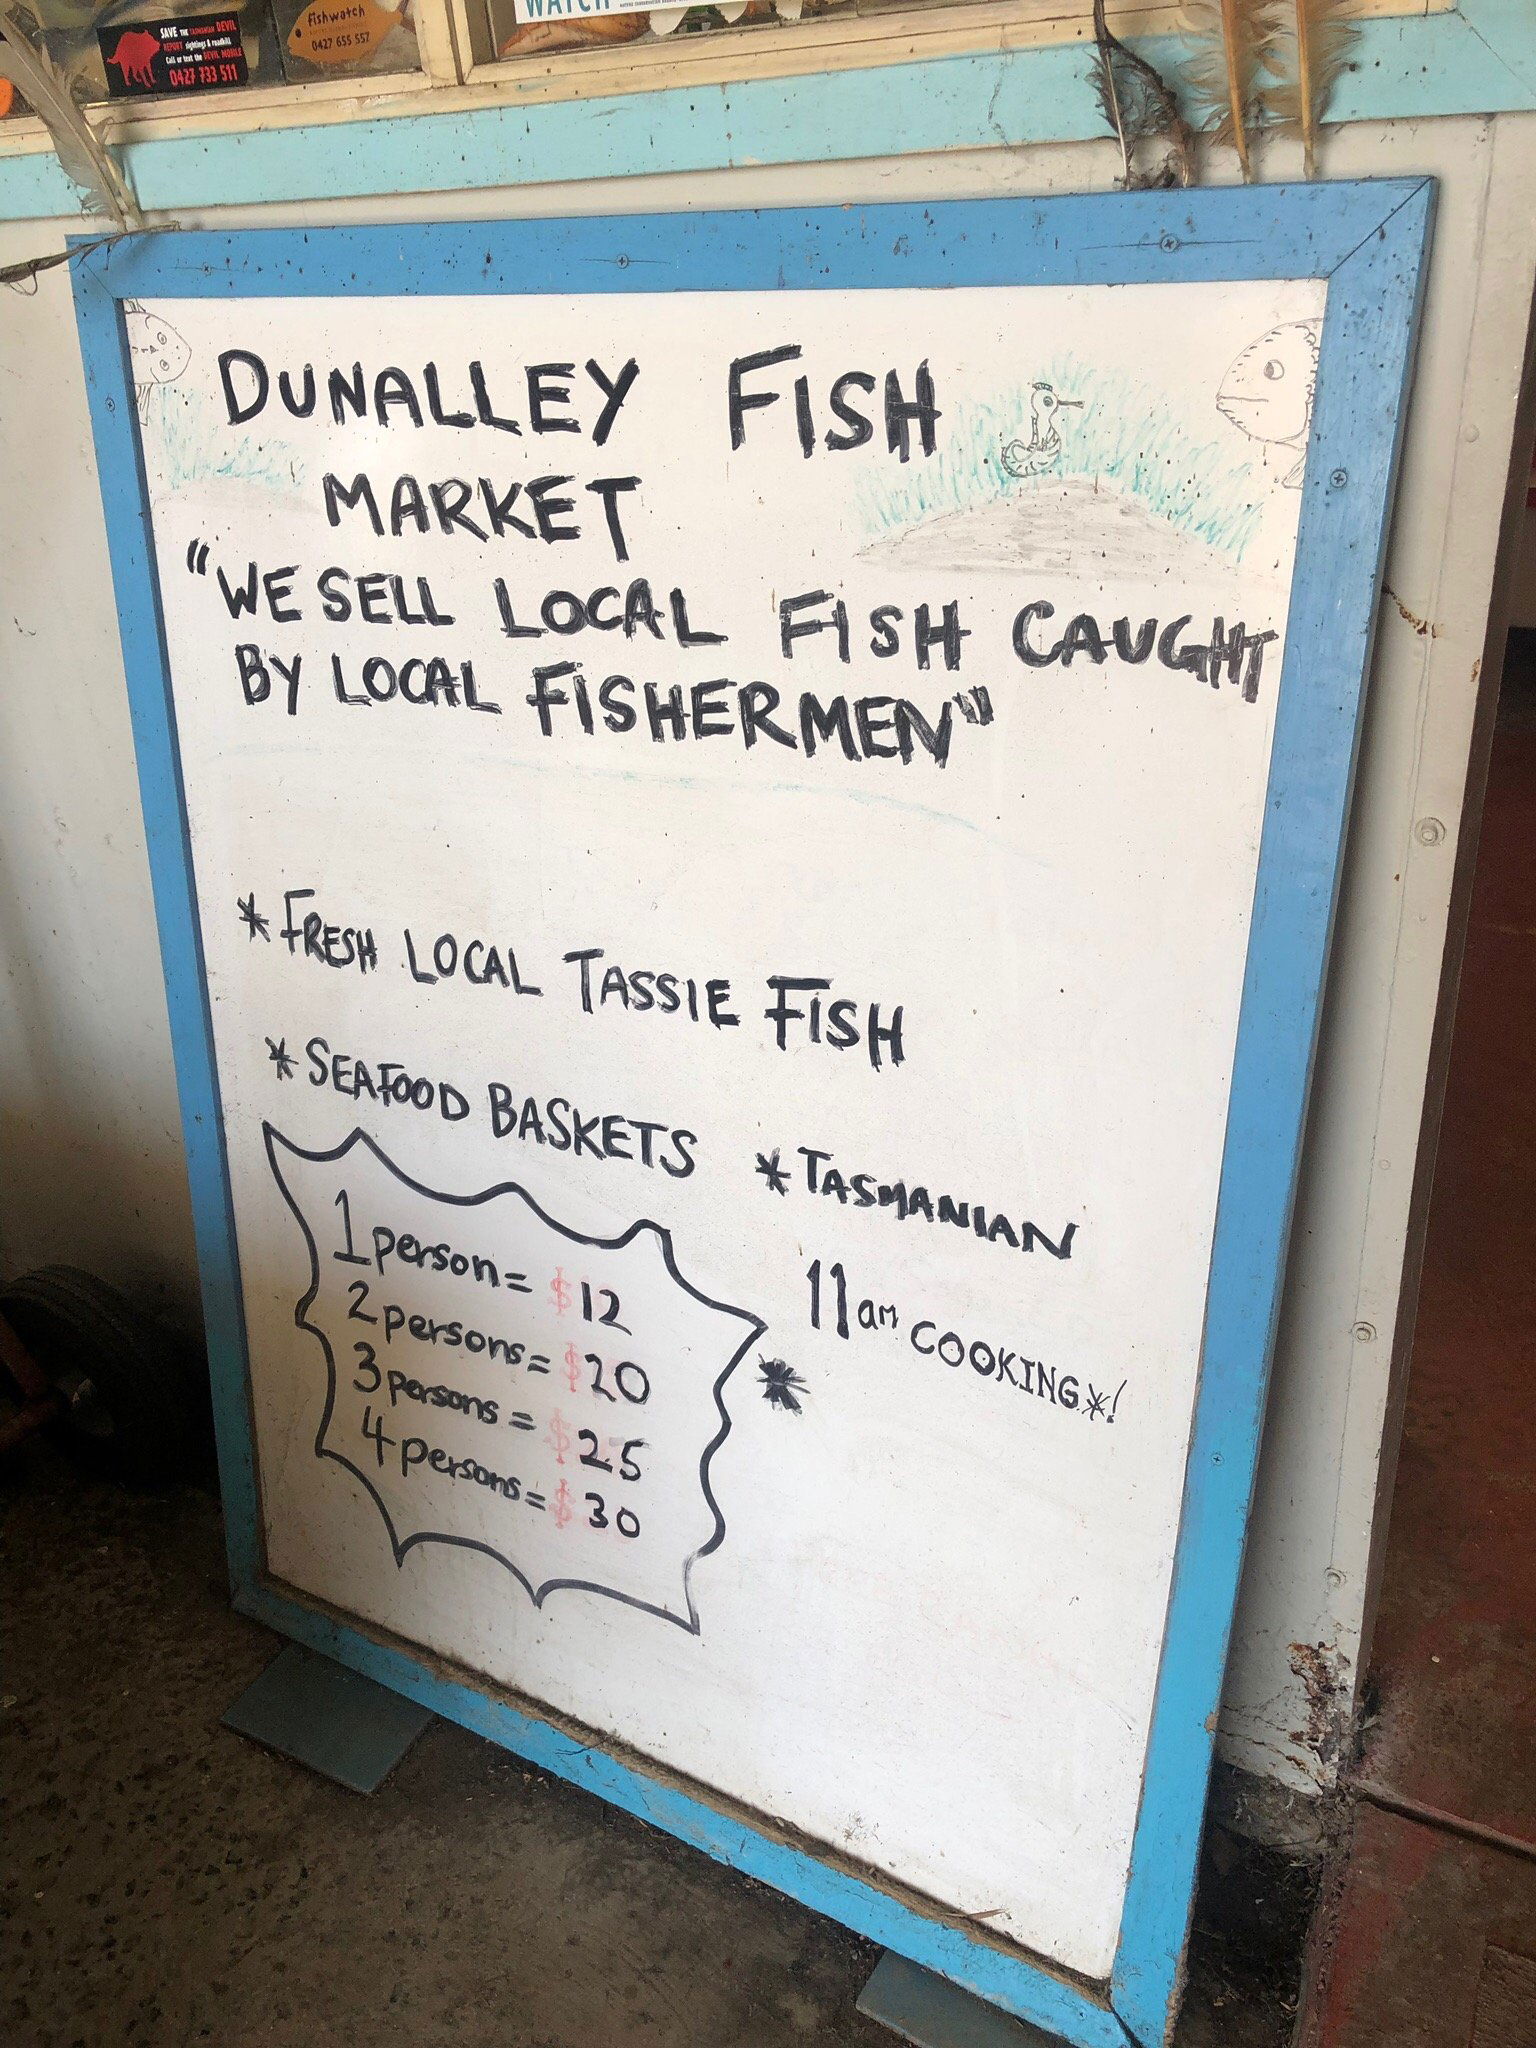 SAVE THE TASMANIAN DEVIL
REPORT sightings & roadkill
Call or text the DEVIL MOBILE
0427 733 511
fishwatch
0427 655 557
WATCH
DUNALLEY FISH
MARKET
"WE SELL LOCAL FISH CAUGHT
BY LOCAL FISHERMEN"
* FRESH LOCAL TASSIE FISH
* SEAFOOD BASKETS
1 person = $ 12
2 persons = $ 20
3 persons = $ 25
4 persons = $ 30
* TASMANIAN
11am COOKING*!
*